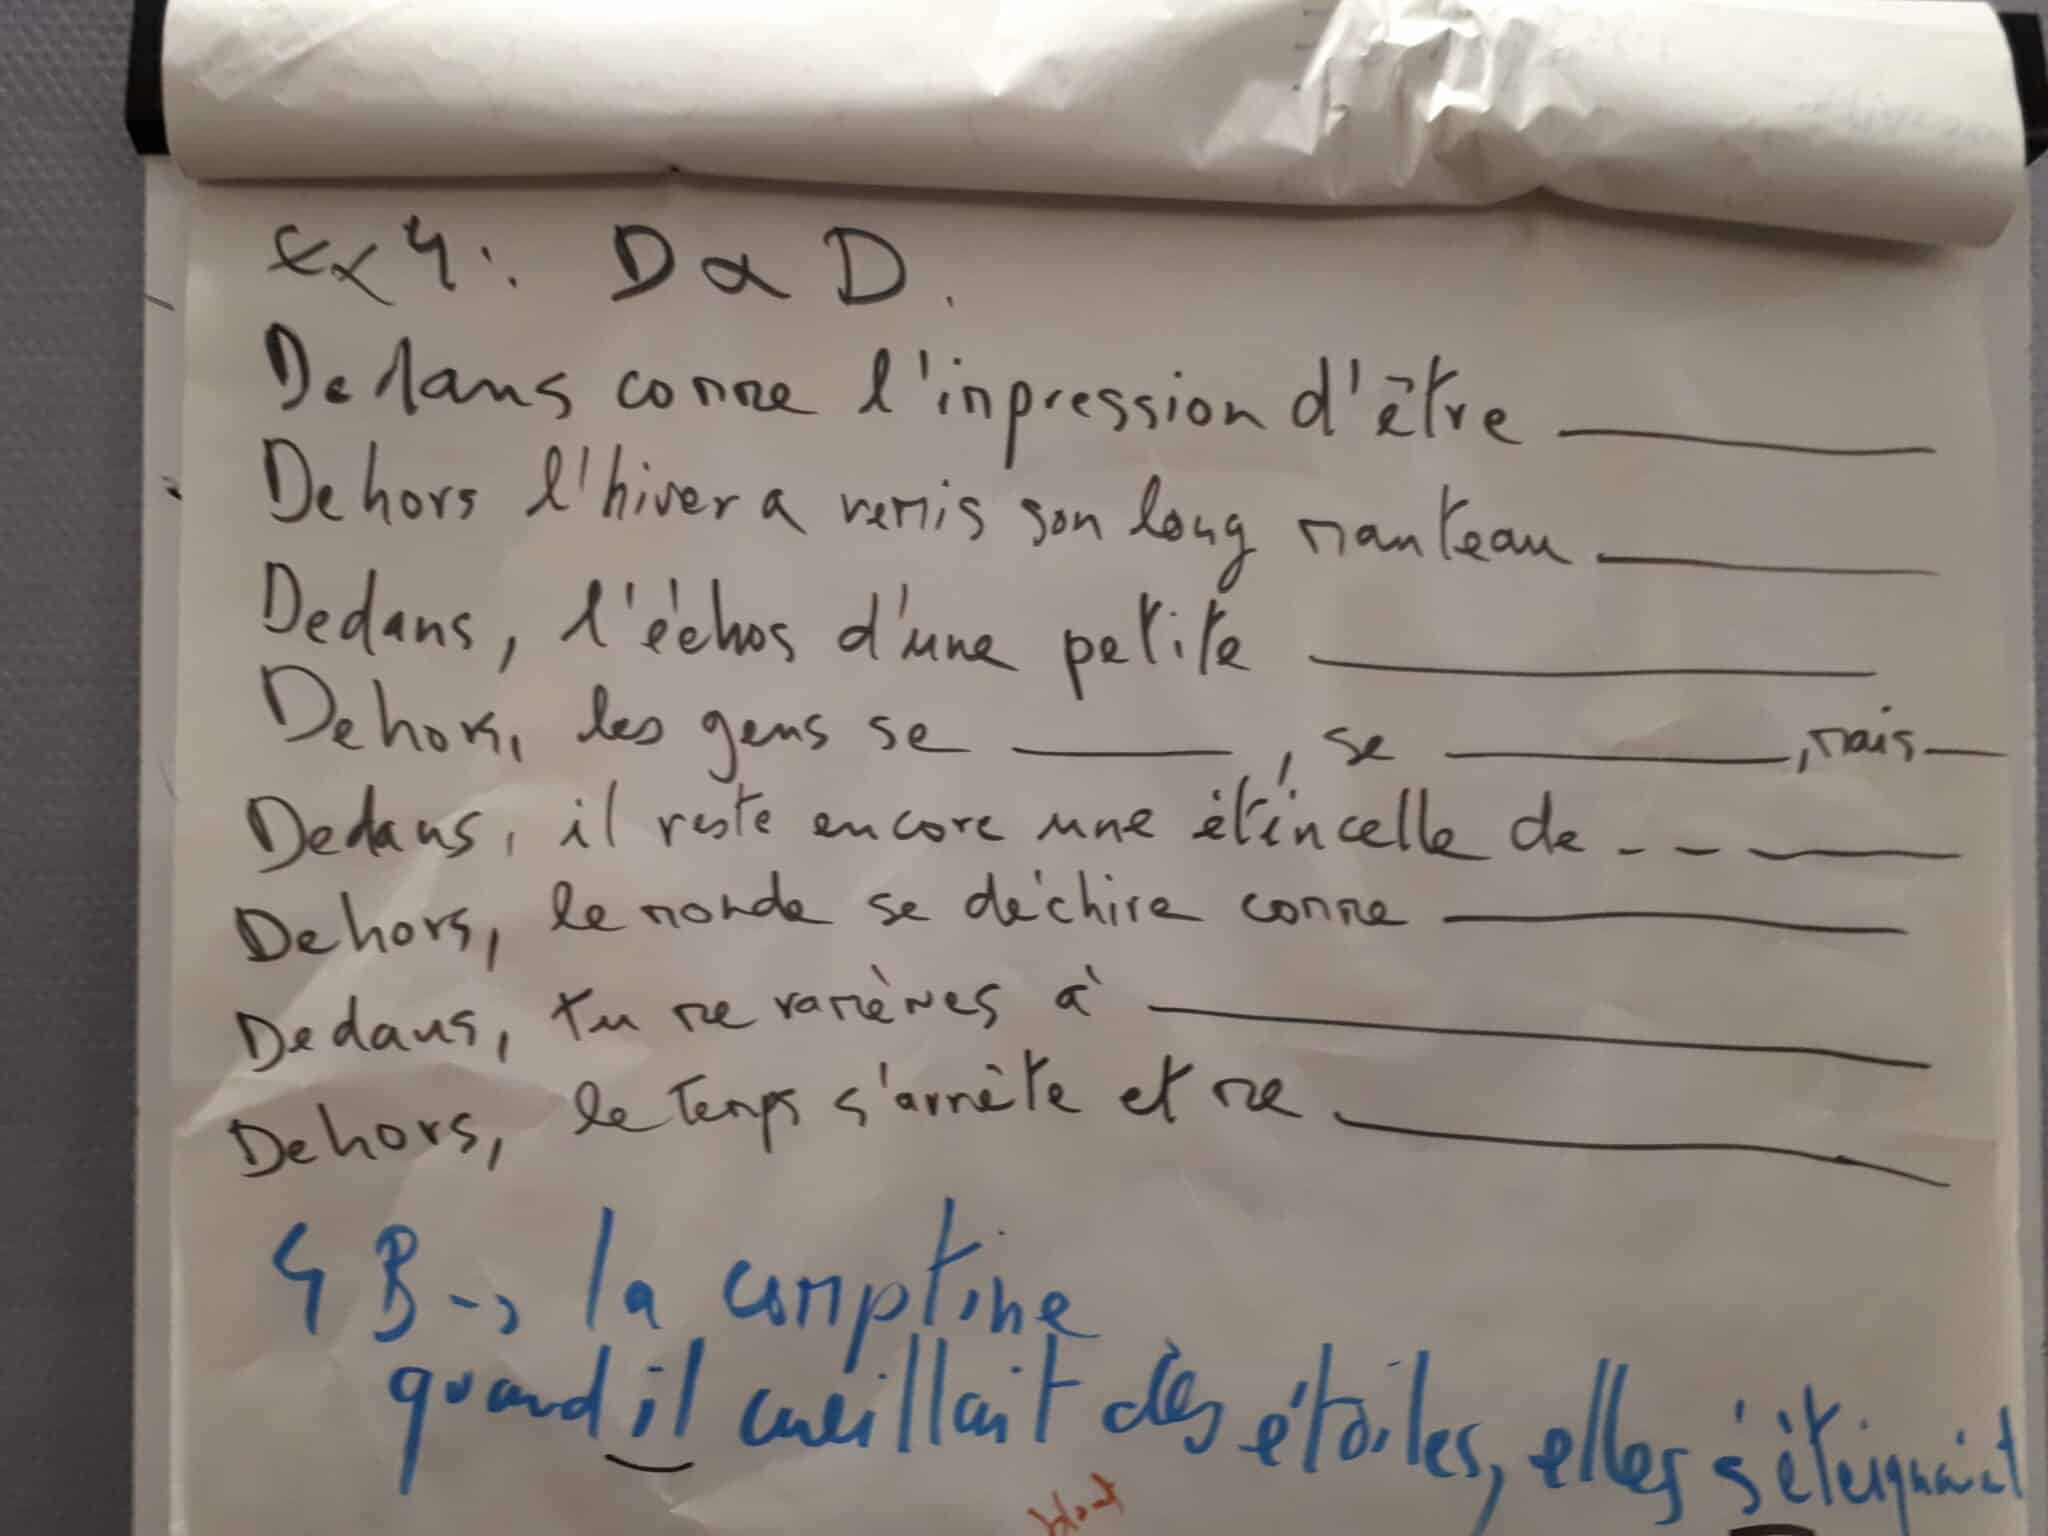 Ex 4 : D & D.
Dedans comme l'impression d'être ______
Dehors l'hiver a remis son long manteau ______
Dedans, l'échos d'une petite ______
Dehors, les gens se ______, se ______, mais ___
Dedans, il reste encore une étincelle de - - ______
Dehors, le monde se déchire comme ______
Dedans, tu me ramènes à ______
Dehors, le temps s'arrête et me ______
4 B -> la comptine
quand il cueillait des étoiles, elles s'éteignaient